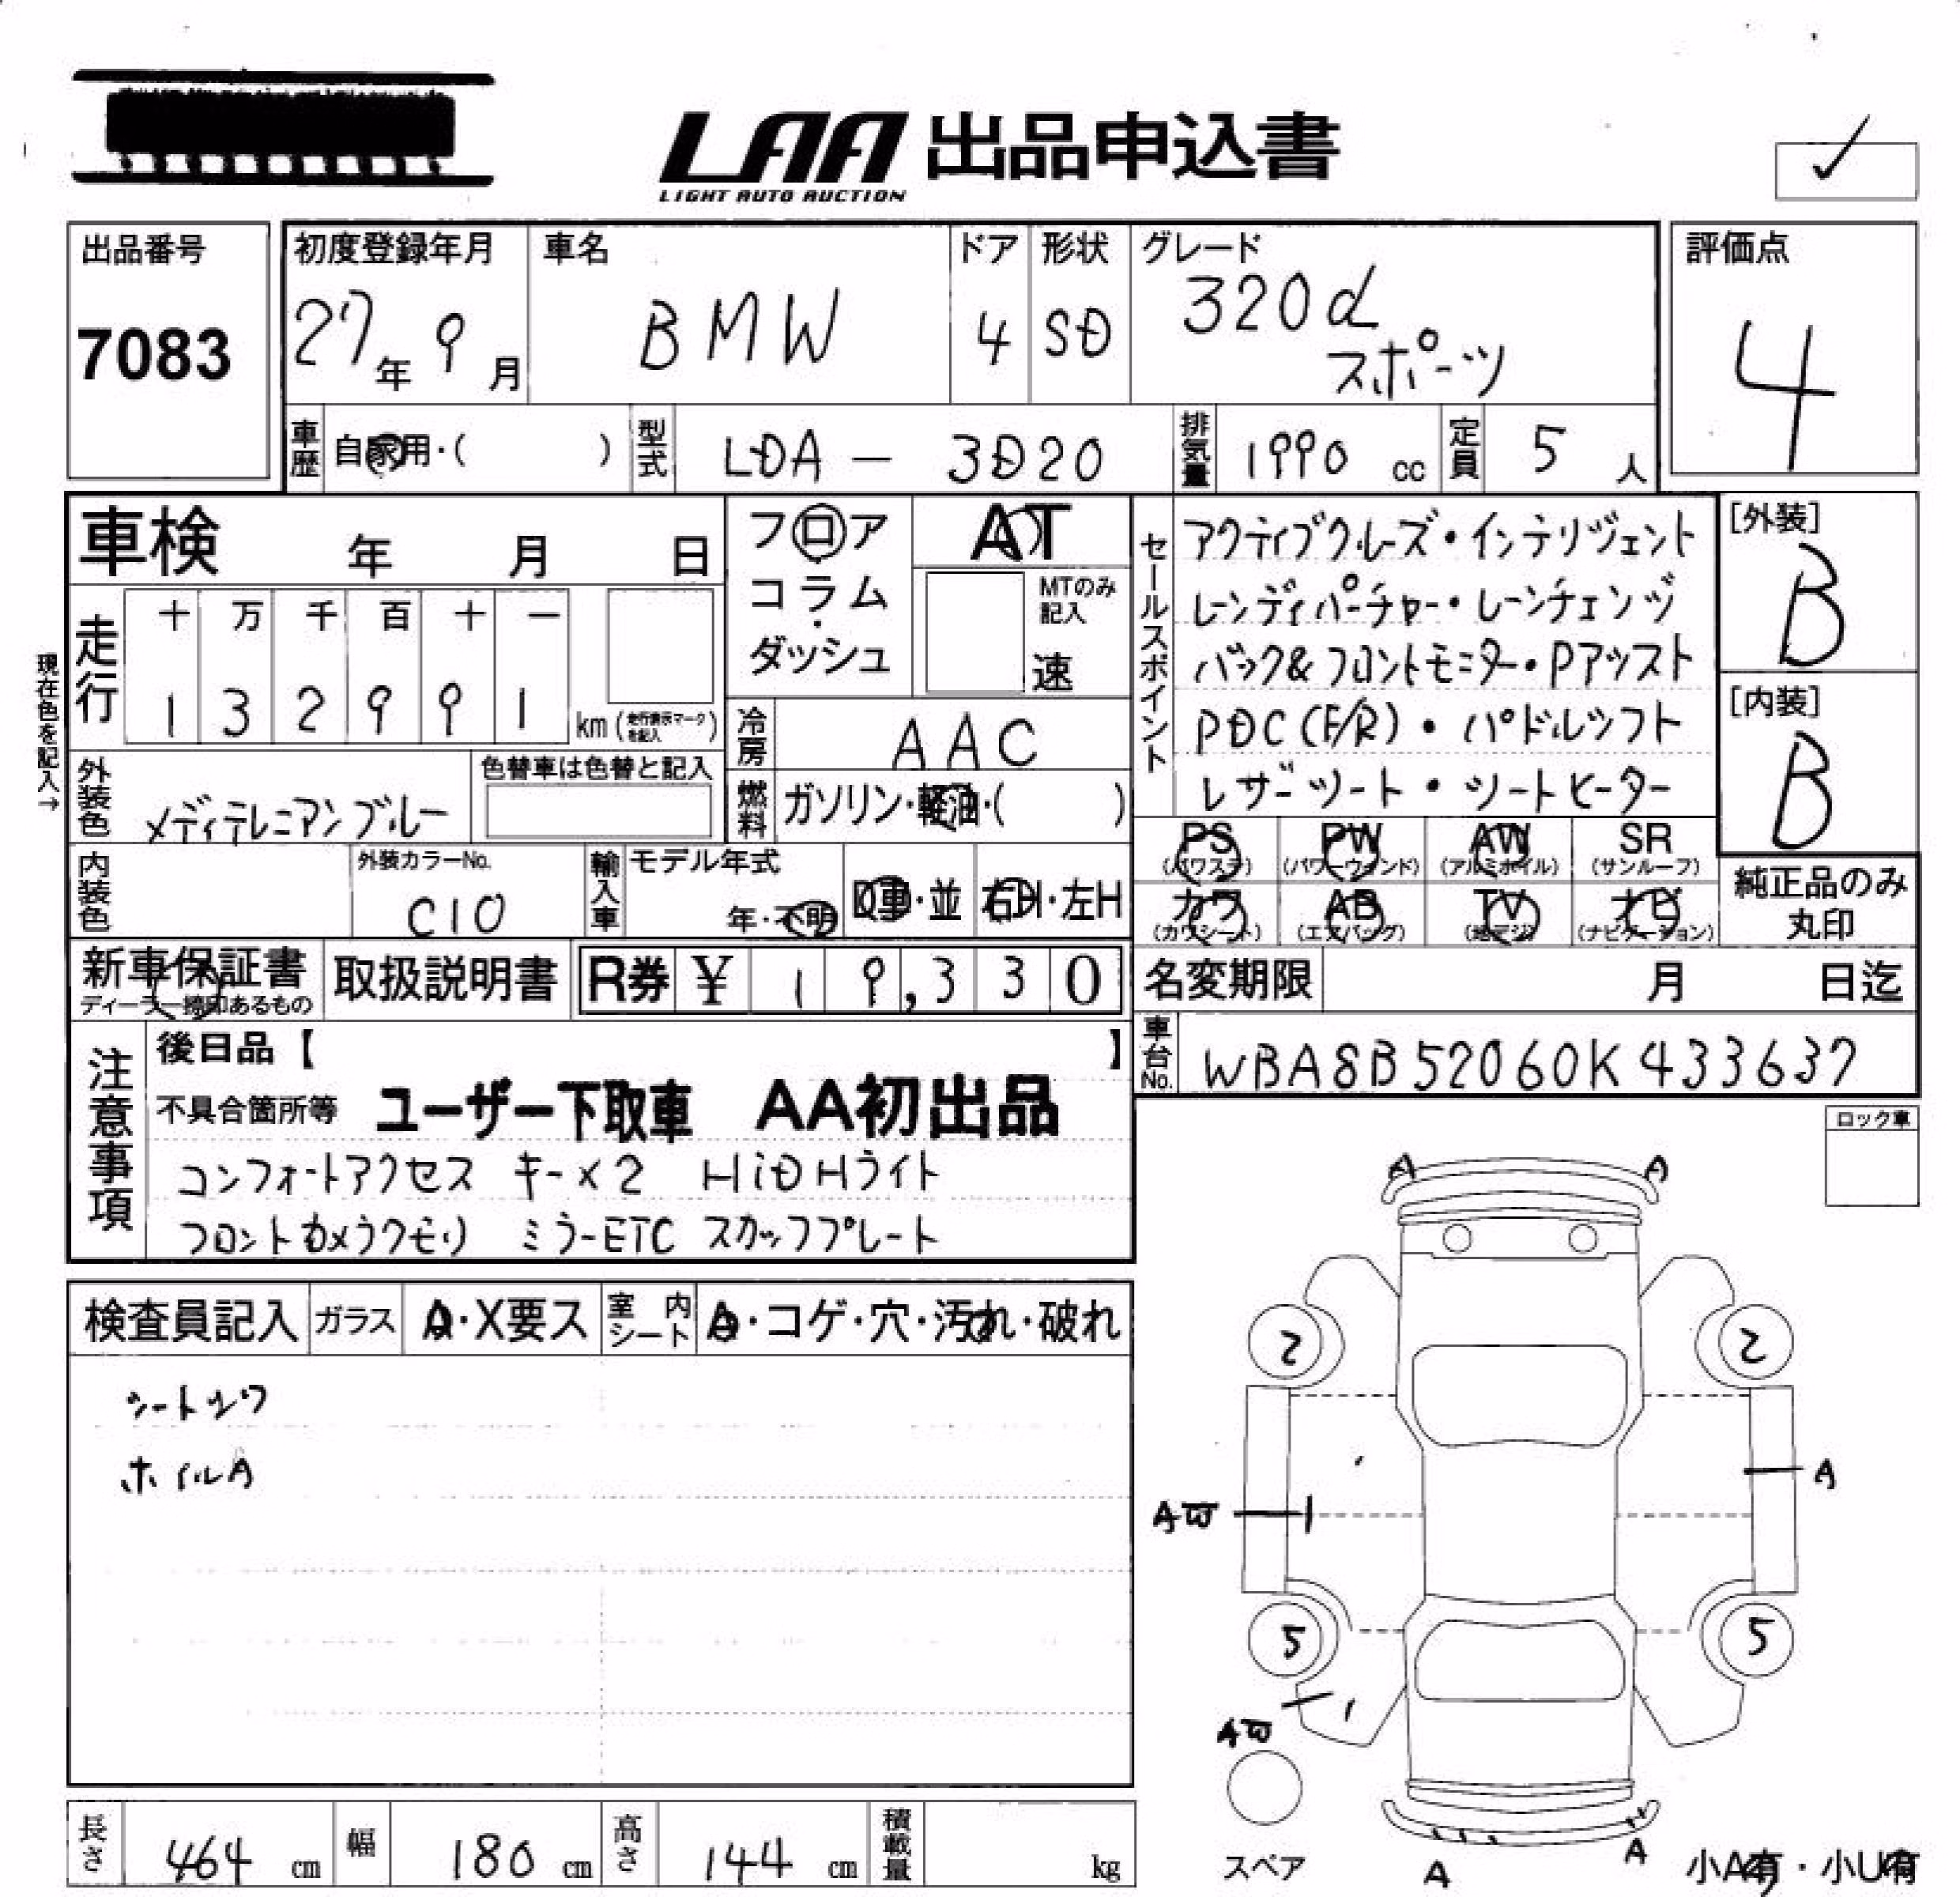 LAA 出品申込書
LIGHT AUTO AUCTION
出品番号
7083
初度登録年月
27年 9月
車名
BMW
ドア
4
形状
SD
グレード
320d
スポーツ
評価点
4
車歴 自家用・( )
型式 LDA - 3D20
排気量 1990 cc
定員 5 人
車検 年 月 日
フロア
コラム
・
ダッシュ
AT
MTのみ
記入
速
現在色を記入→
走行
十 万 千 百 十 一
1 3 2 9 9 1 km (走行表示マークを記入)
冷房 AAC
外装色 メディテレニアンブルー
色替車は色替と記入
燃料 ガソリン・軽油・( )
内装色
外装カラーNo.
C10
輸入車 モデル年式
年・不明
D車・並
右H・左H
セールスポイント
アクティブクルーズ・インテリジェント
レーンディパーチャー・レーンチェンジ
バック&フロントモニター・Pアシスト
PDC(F/R)・パドルシフト
レザーシート・シートヒーター
[外装]
B
[内装]
B
PS (パワステ) PW (パワーウィンド) AW (アルミホイル) SR (サンルーフ)
カワ (カワシート) AB (エアバッグ) TV (地デジ) ナビ (ナビゲーション)
純正品のみ
丸印
新車保証書
ディーラー捺印あるもの
取扱説明書
R券 ¥ 19,330
名変期限 月 日迄
車台No. WBA8B52060K433637
注意事項
後日品【 】
不具合箇所等 ユーザー下取車 AA初出品
コンフォートアクセス キー×2 HiD Hライト
フロントカメラクモリ ミラーETC スカッフプレート
ロック車
検査員記入 ガラス A・X要ス 室内シート A・コゲ・穴・汚れ・破れ
シートシワ
ホイルA
A A
2 2
AW A
5 5
AW
スペア
A A
小A有・小U有
長さ 464 cm 幅 180 cm 高さ 144 cm 積載量 kg